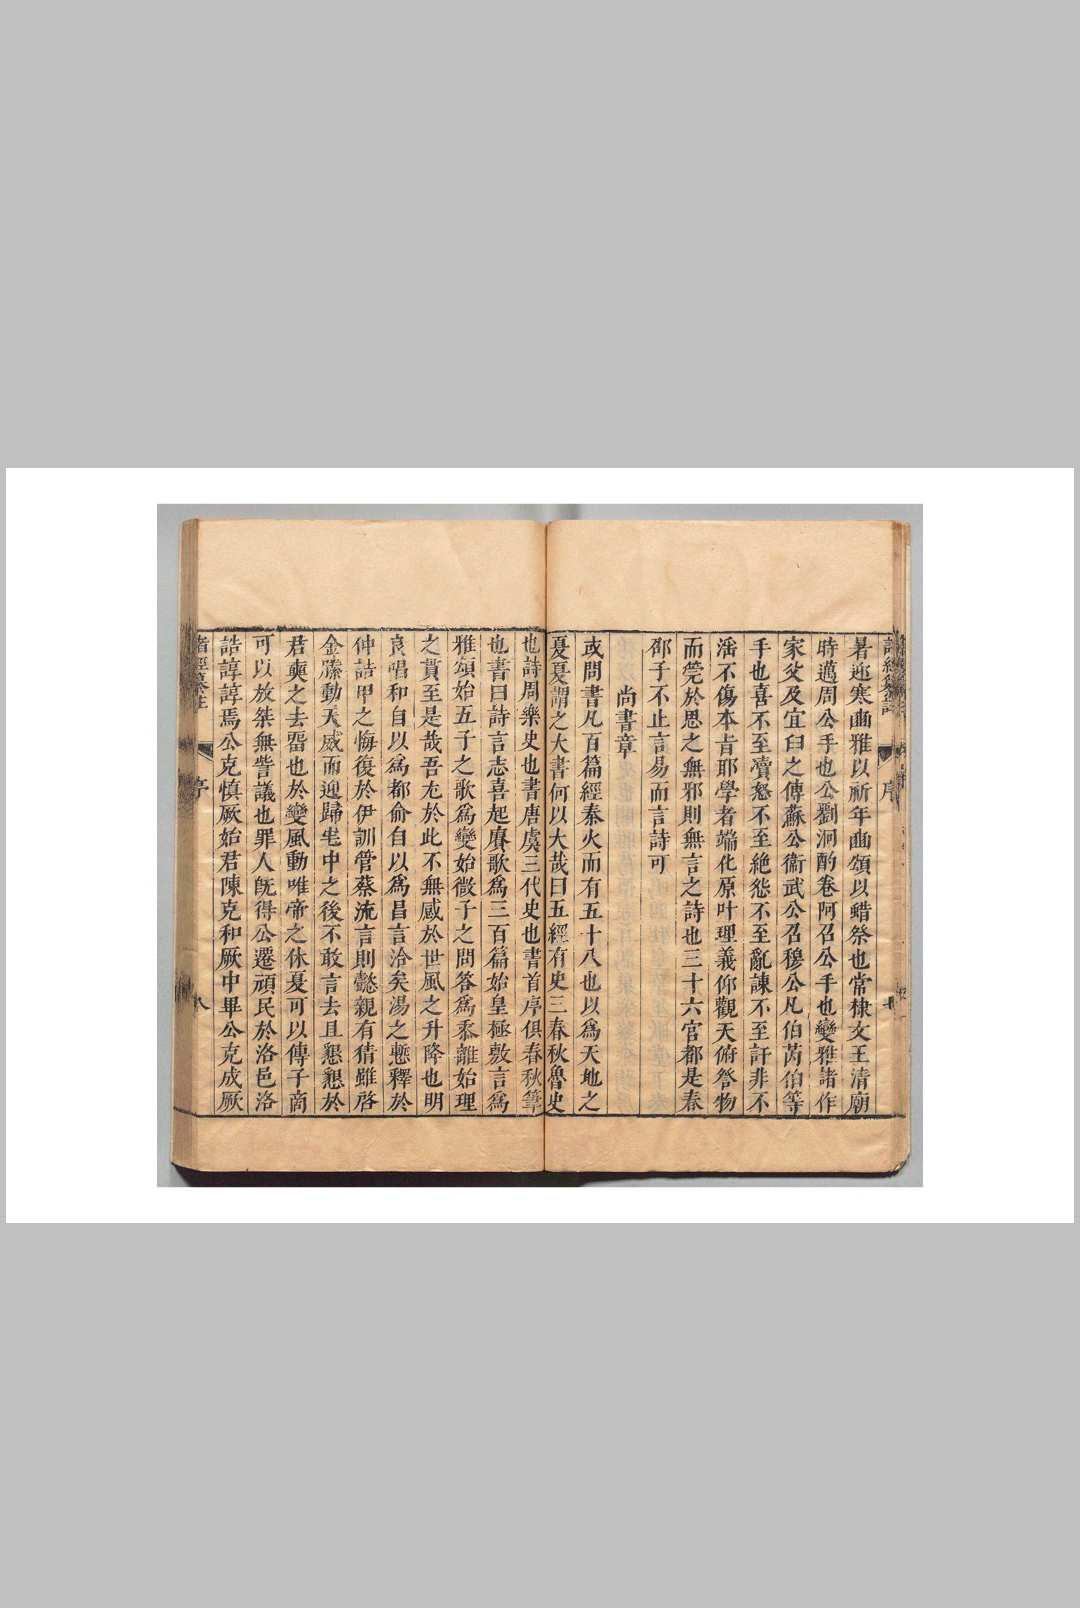 暑迎寒豳雅以祈年豳頌以蜡祭也常棣文王清廟
時邁周公手也公劉泂酌卷阿召公手也變雅諸作
家父及宜臼之傳蘇公衞武公召穆公凡伯芮伯等
手也喜不至瀆怒不至絶怨不至亂諫不至訐非不
淫不傷本肯耶學者端化原叶理義仰觀天俯詧物
而筦於思之無邪則無言之詩也三十六官都是春
邵子不止言易而言詩可
尚書章
或問書凡百篇經秦火而有五十八也以爲天地之
戛戛謂之大書何以大哉曰五經有史三春秋魯史
也詩周樂史也書唐虞三代史也書首序俱春秋筆
也書曰詩言志喜起賡歌爲三百篇始皇極敷言爲
雅頌始五子之歌爲變始微子之問答爲黍離始理
之貫至是哉吾尤於此不無感於世風之升降也明
良唱和自以爲都俞自以爲昌言洽矣湯之慙釋於
仲誥甲之悔復於伊訓管蔡流言則懿親有猜雖啓
金縢動天威而迎歸乍中之後不敢言去且懇懇於
君奭之去畱也於變風動唯帝之休戛可以傳子商
可以放桀無訾議也罪人旣得公遷頑民於洛邑洛
誥諄諄焉公克慎厥始君陳克和厥中畢公克成厥
諸經纂註
序
八